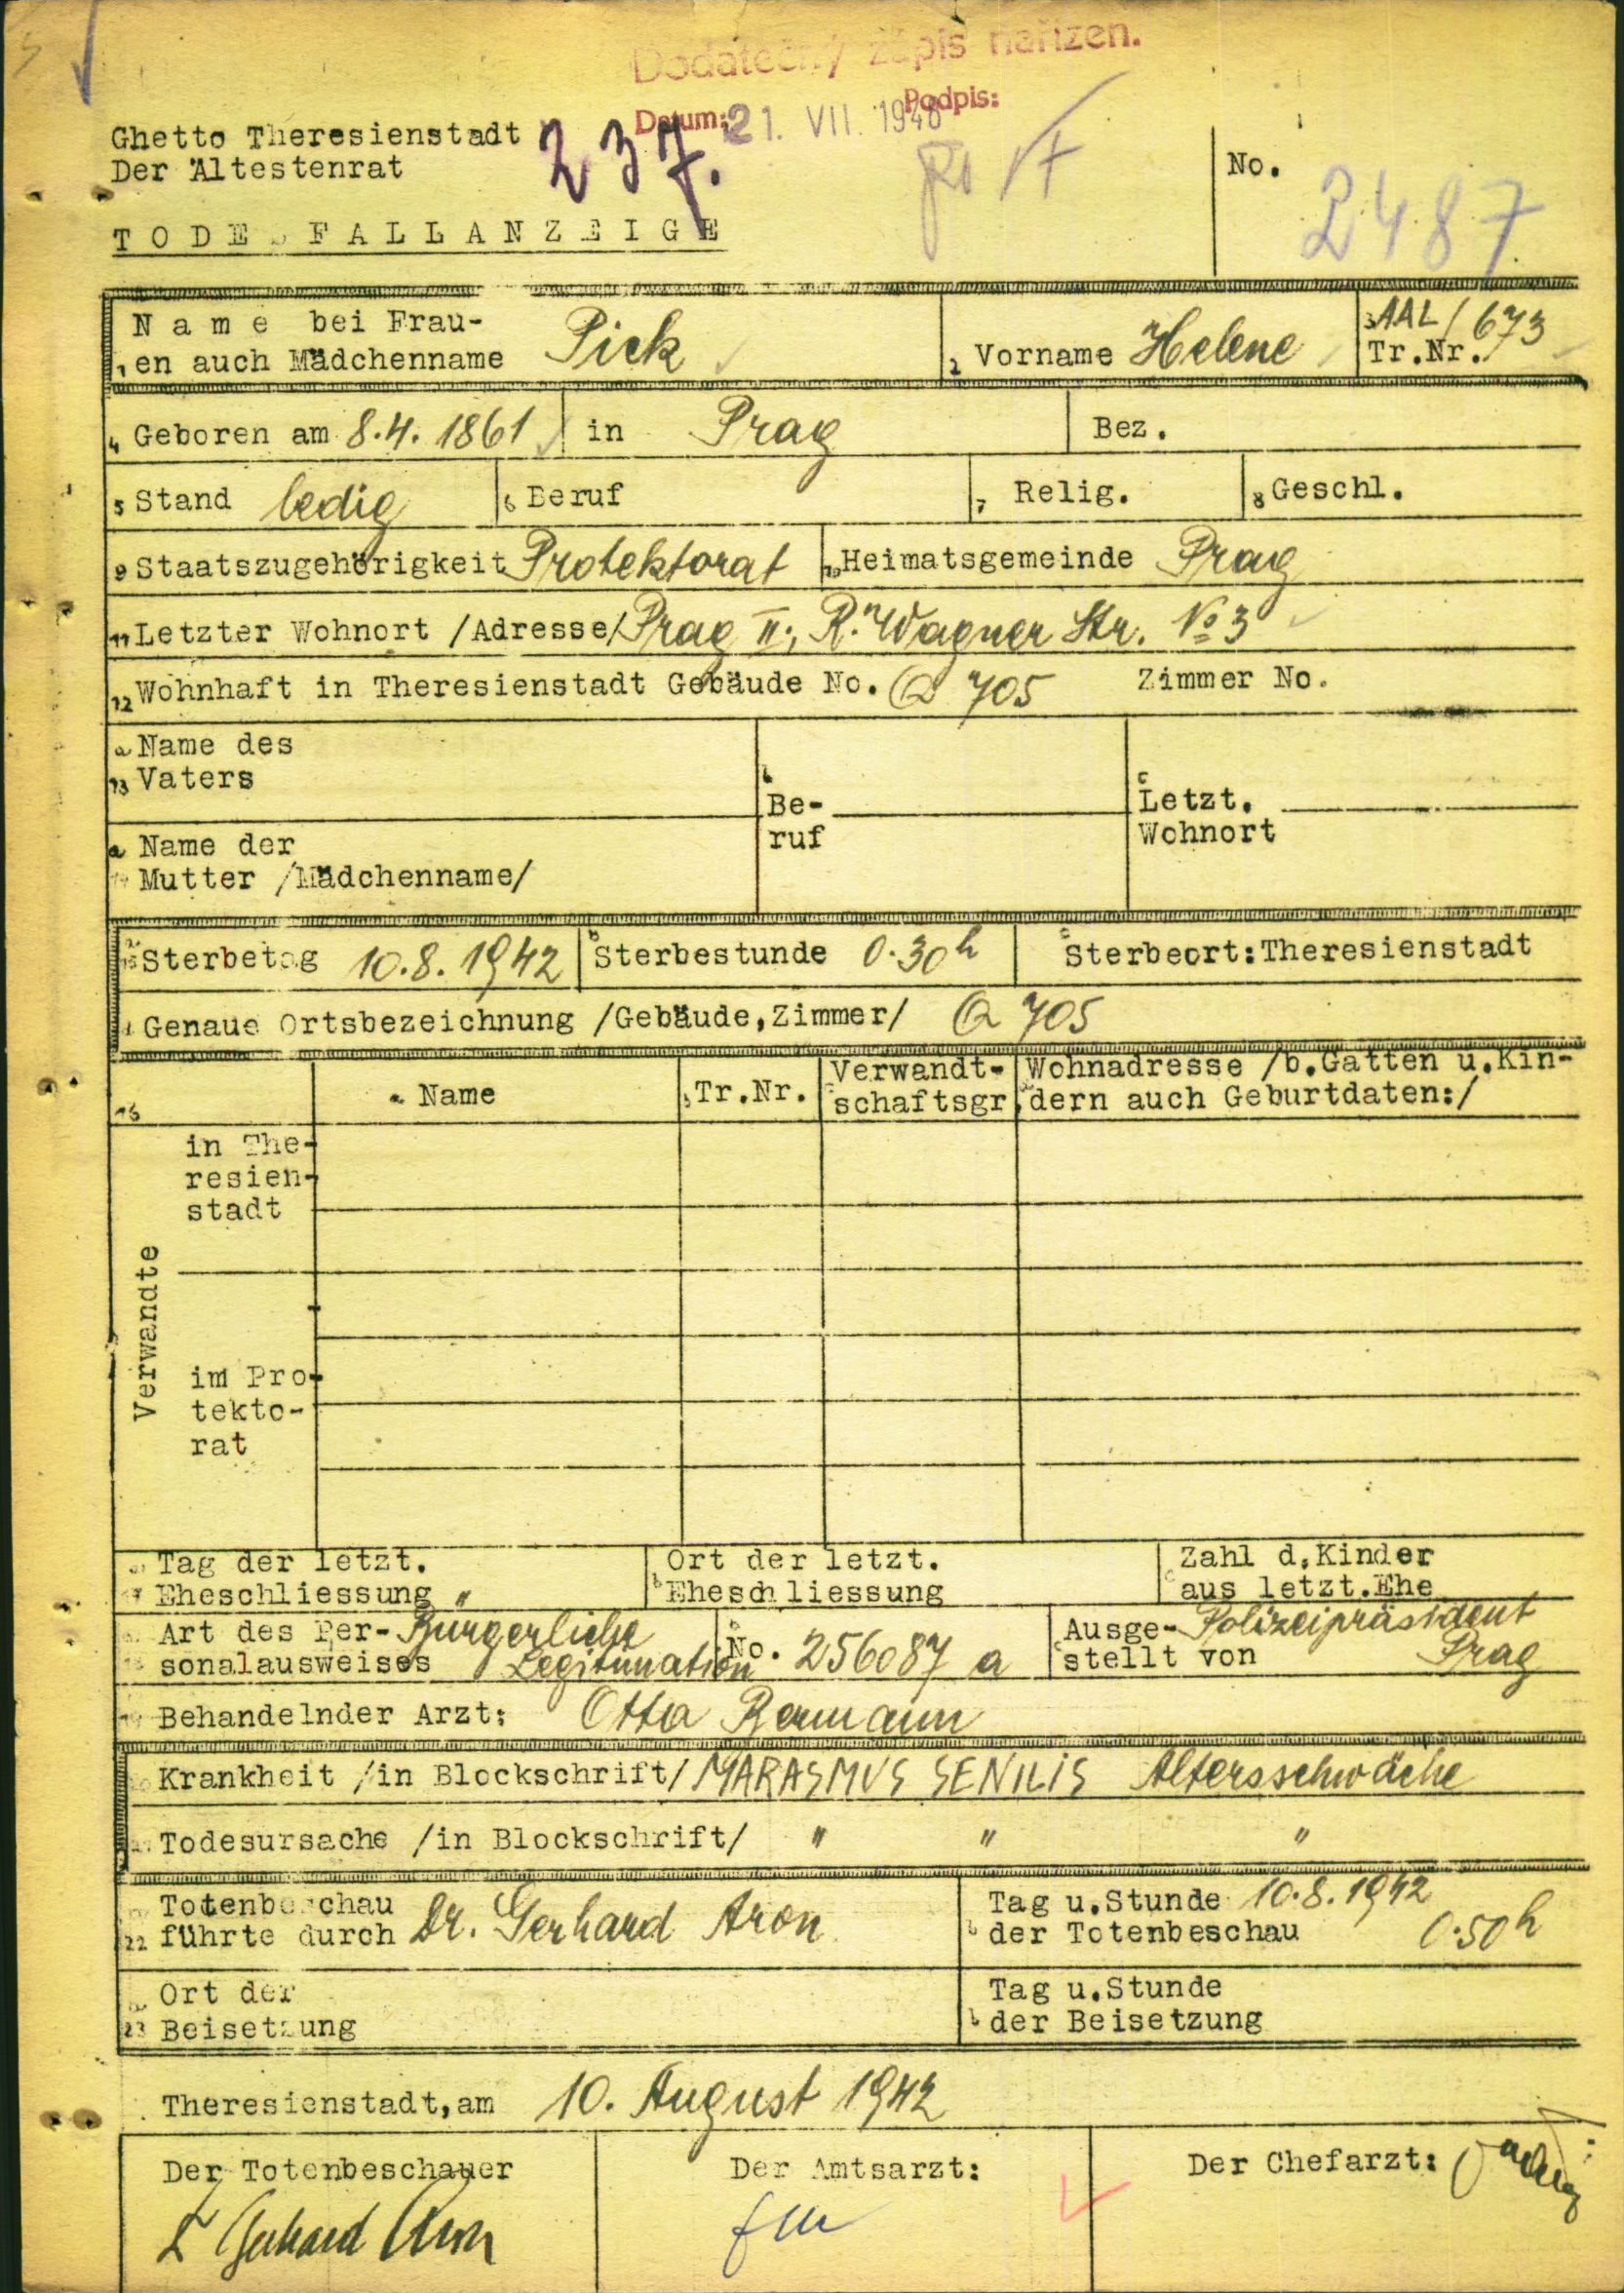 Dodatečný zápis nařízen.
Datum: 21. VII. 1948 Podpis:
Ghetto Theresienstadt
Der Ältestenrat
237.
No. 2487
TODESFALLANZEIGE
1 Name bei Frau-
en auch Mädchenname Pick
2 Vorname Helene
3 AAL/673
Tr.Nr.
4 Geboren am 8.4.1861 in Prag Bez.
5 Stand ledig 6 Beruf 7 Relig. 8 Geschl.
9 Staatszugehörigkeit Protektorat 10 Heimatsgemeinde Prag
11 Letzter Wohnort /Adresse/ Prag II., R. Wagner Str. No 3
12 Wohnhaft in Theresienstadt Gebäude No. Q 705 Zimmer No.
a Name des
13 Vaters
b Be-
ruf
c Letzt.
Wohnort
a Name der
14 Mutter /Mädchenname/
15 Sterbetag 10.8.1942 b Sterbestunde 0.30h c Sterbeort: Theresienstadt
d Genaue Ortsbezeichnung /Gebäude, Zimmer/ Q 705
16 a Name b Tr.Nr. c Verwandt-
schaftsgr. Wohnadresse /b.Gatten u.Kin-
dern auch Geburtdaten:/
Verwandte
in The-
resien-
stadt
im Pro-
tekto-
rat
Tag der letzt.
17 Eheschliessung "
b Ort der letzt.
Eheschliessung
c Zahl d.Kinder
aus letzt.Ehe
Art des Per-
18 sonalausweises Bürgerliche
Legitimation
No. 256087 a
c Ausge-
stellt von Polizeipräsident
Prag
19 Behandelnder Arzt: Otto Bermann
20 Krankheit /in Blockschrift/ MARASMUS SENILIS Altersschwäche
21 Todesursache /in Blockschrift/ " " "
Totenbeschau
22 führte durch Dr. Gerhard Aron
b Tag u.Stunde 10.8.1942
der Totenbeschau 0.50h
a Ort der
23 Beisetzung
b Tag u.Stunde
der Beisetzung
Theresienstadt, am 10. August 1942
Der Totenbeschauer
Gerhard Aron
Der Amtsarzt:
Der Chefarzt: